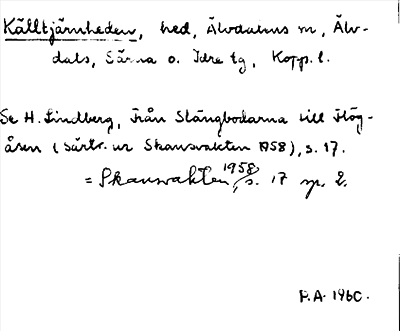 Källtjärnheden, hed, Älvdalens sn, Älv-
dals, Särna o. Idre tg, Kopp. l.
Se H. Lindberg, Från Stängbodarna till Hög-
åsen (särtr. ur Skansvakten 1958), s. 17.
= Skansvakten 1958, s. 17 sp. 2.
P.A. 1960.